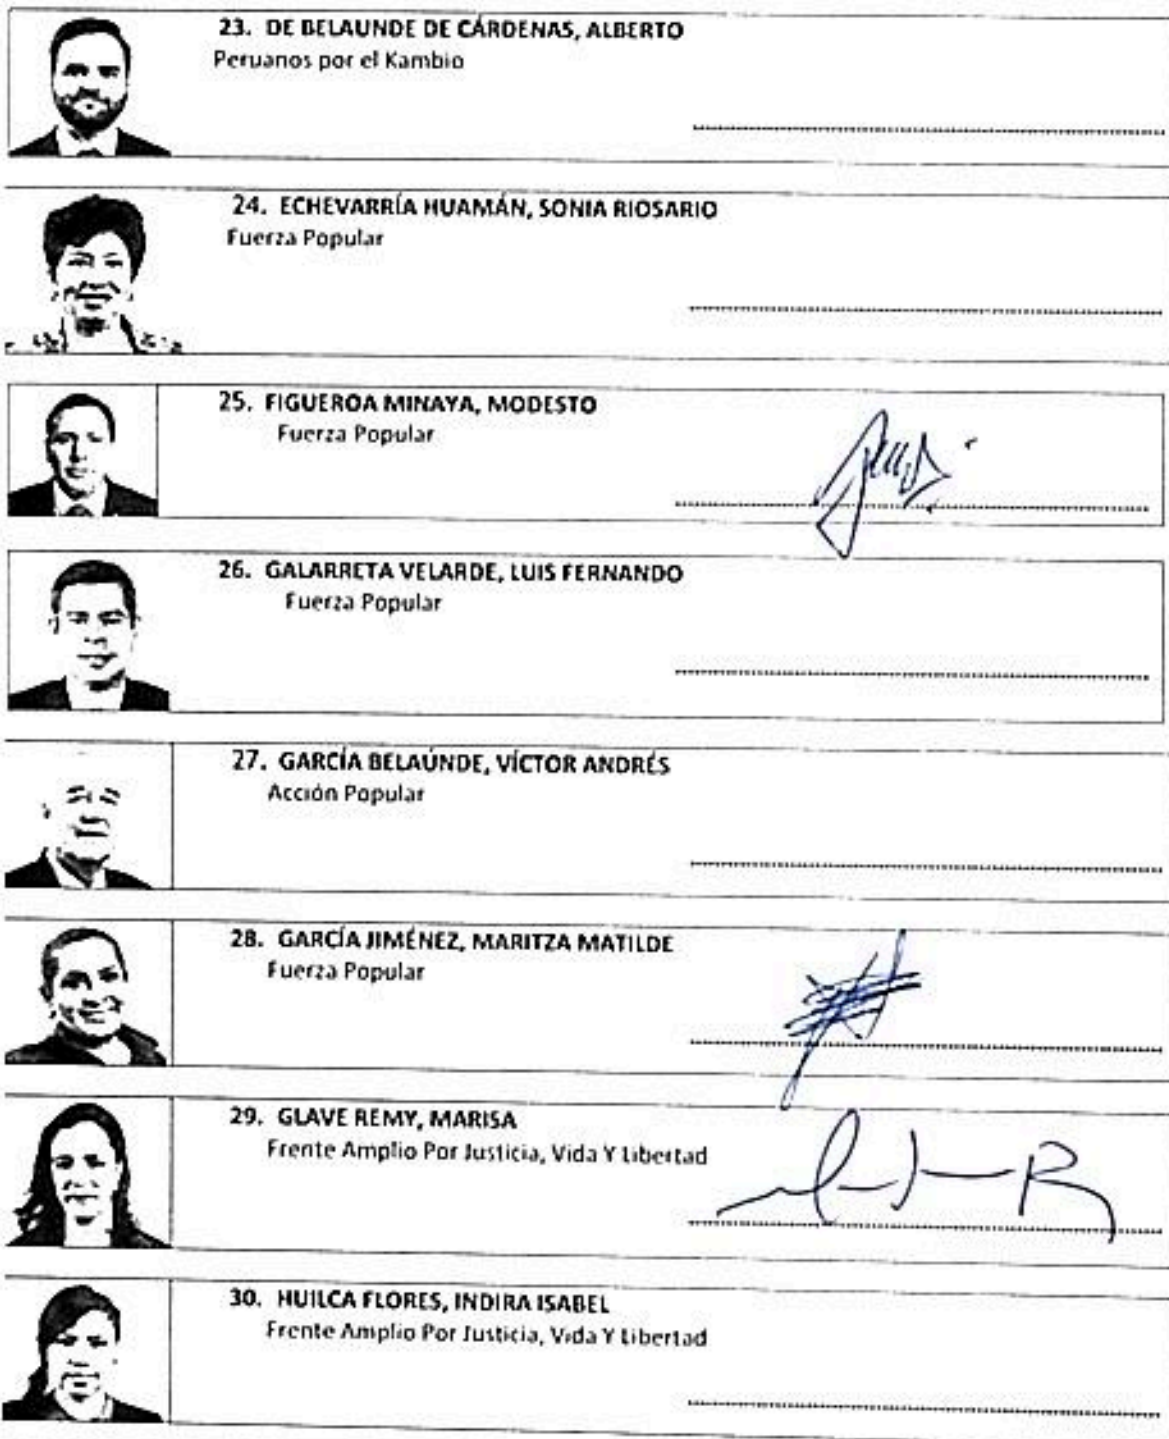 23. DE BELAUNDE DE CÁRDENAS, ALBERTO
Peruanos por el Kambio
24. ECHEVARRÍA HUAMÁN, SONIA RIOSARIO
Fuerza Popular
25. FIGUEROA MINAYA, MODESTO
Fuerza Popular
26. GALARRETA VELARDE, LUIS FERNANDO
Fuerza Popular
27. GARCÍA BELAÚNDE, VÍCTOR ANDRÉS
Acción Popular
28. GARCÍA JIMÉNEZ, MARITZA MATILDE
Fuerza Popular
29. GLAVE REMY, MARISA
Frente Amplio Por Justicia, Vida Y Libertad
30. HUILCA FLORES, INDIRA ISABEL
Frente Amplio Por Justicia, Vida Y Libertad